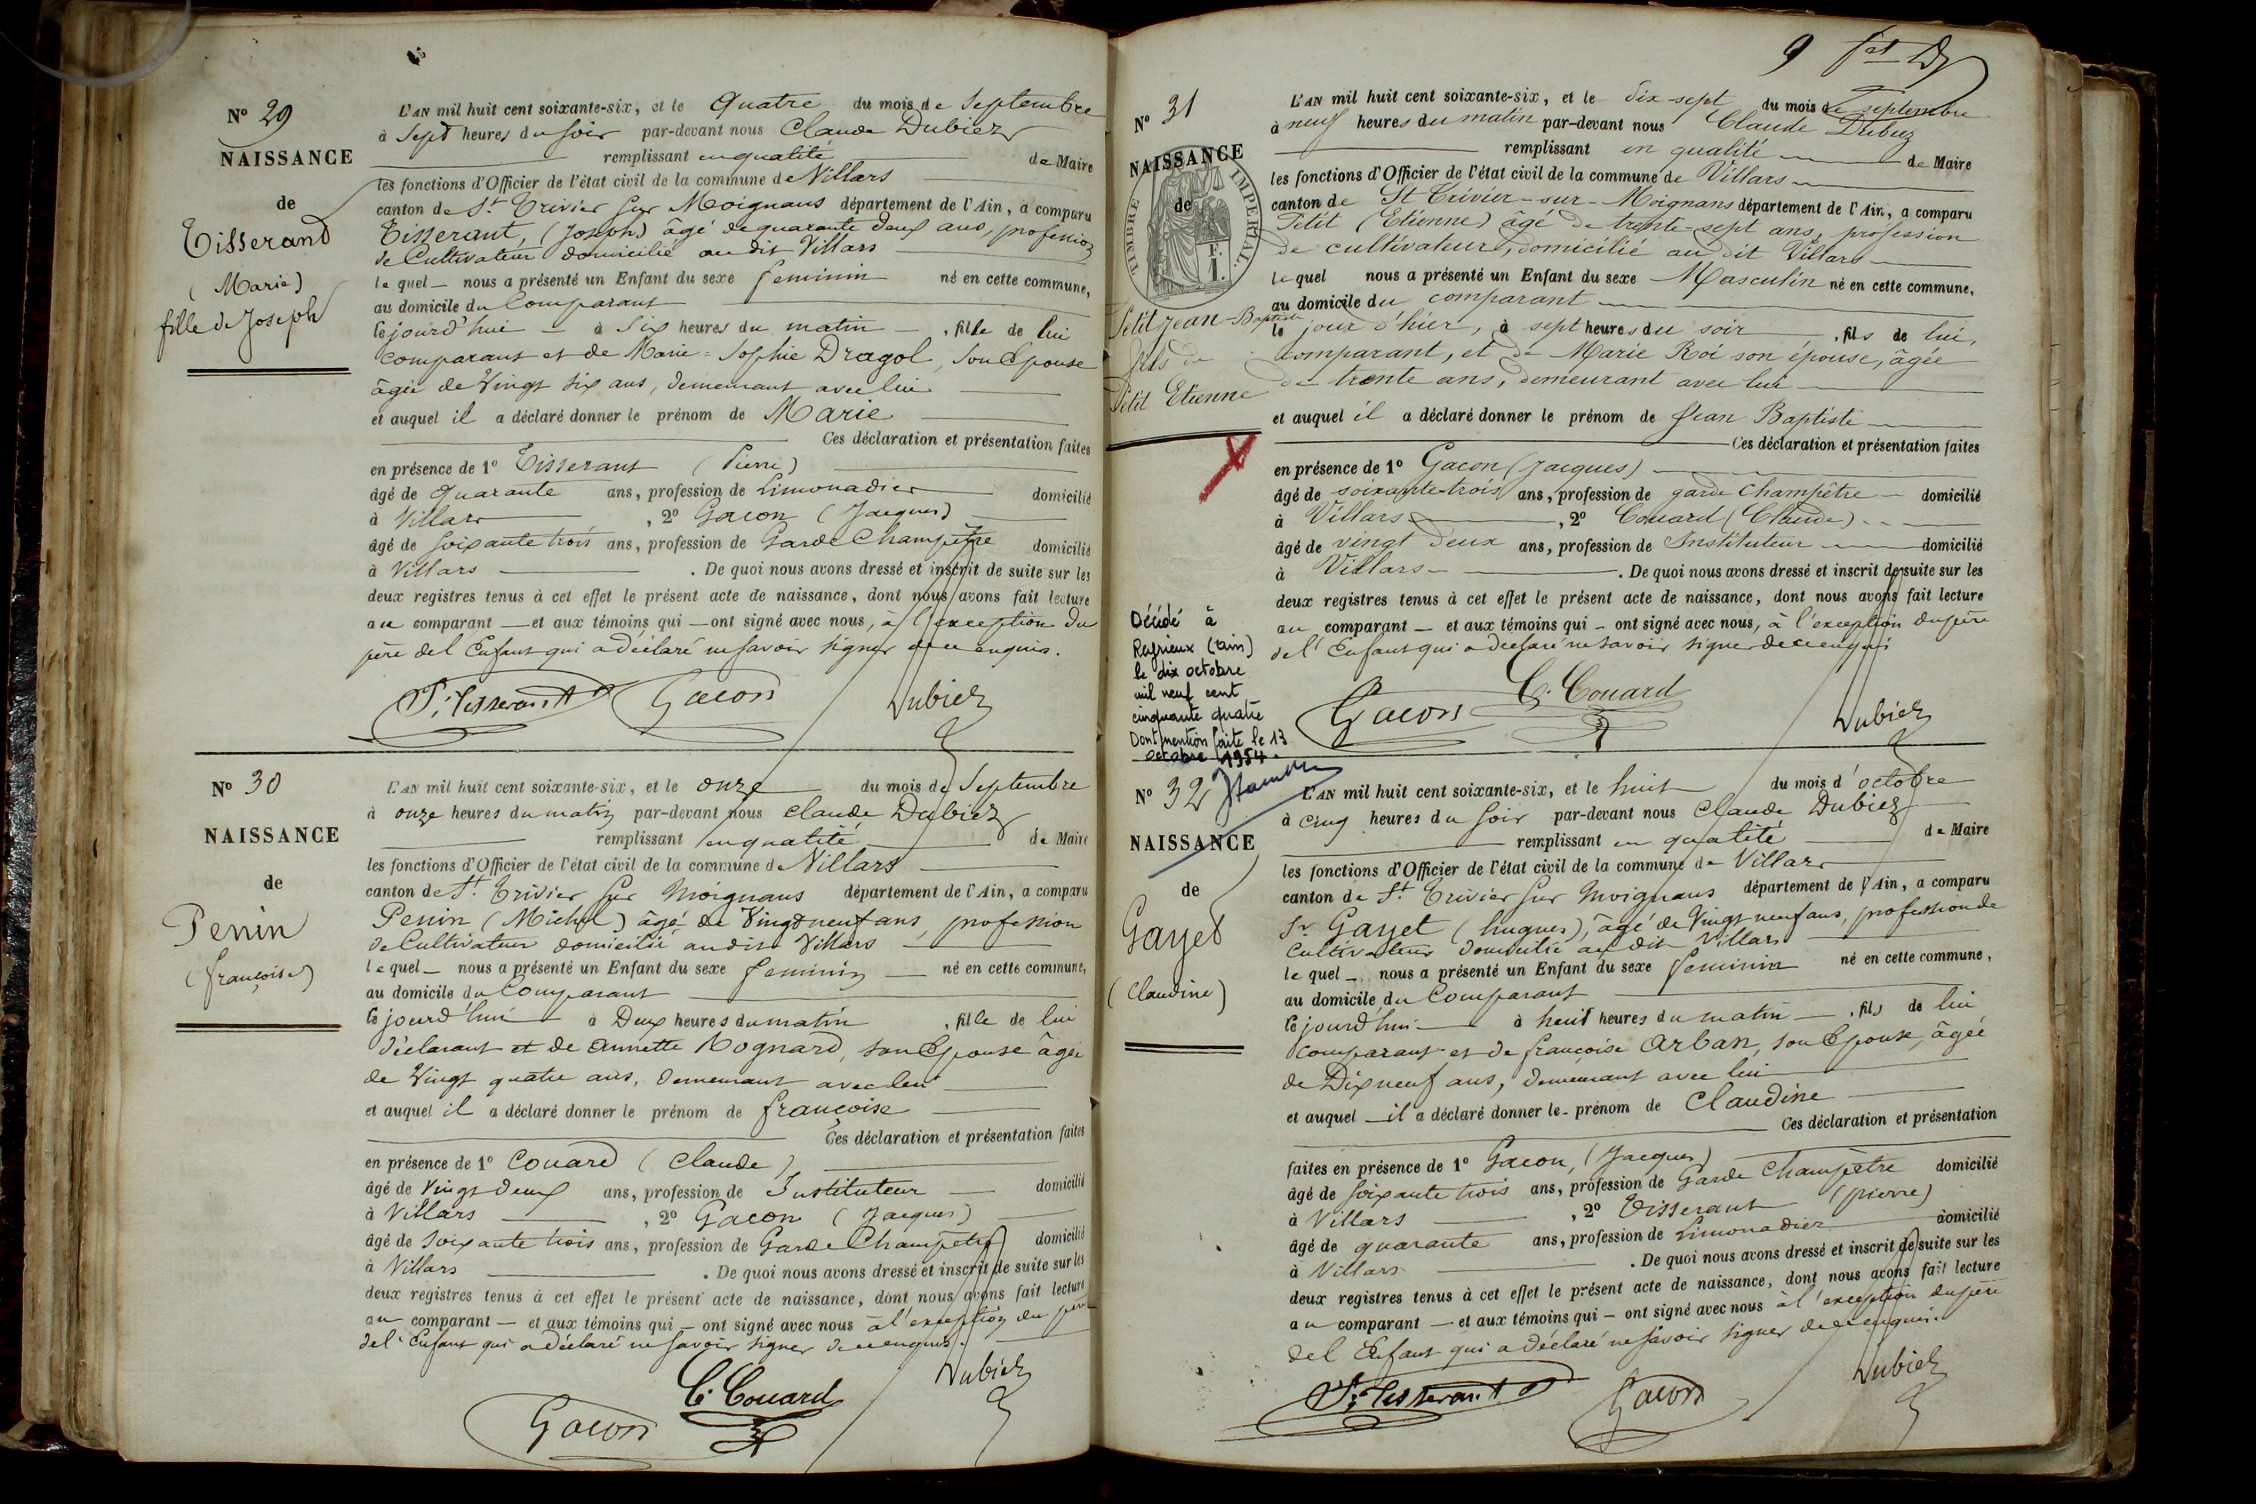 Nº 29
NAISSANCE
de
Tisserand
(Marie)
fille de Joseph
L'AN mil huit cent soixante-six, et le Quatre du mois de Septembre
à Sept heures du soir par-devant nous Claude Dubiez
remplissant en qualité de Maire
les fonctions d'Officier de l'état civil de la commune de Villars
canton de St Trivier sur Moignans département de l'Ain, a comparu
Tisserant, (Joseph) âgé de quarante deux ans, profession
de Cultivateur domicilié au dit Villars
lequel nous a présenté un Enfant du sexe feminin né en cette commune,
au domicile du Comparant
le jourd'hui à Six heures du matin, fille de lui
comparant et de Marie-Sophie Dragol, son Epouse
âgée de Vingt six ans, demeurant avec lui
et auquel il a déclaré donner le prénom de Marie
Ces déclaration et présentation faites
en présence de 1º Tisserant (Pierre)
âgé de quarante ans, profession de Limonadier domicilié
à Villars, 2º Gacon (Jacques)
âgé de soixante trois ans, profession de Garde Champêtre domicilié
à Villars. De quoi nous avons dressé et inscrit de suite sur les
deux registres tenus à cet effet le présent acte de naissance, dont nous avons fait lecture
au comparant et aux témoins qui ont signé avec nous, à l'exception du
père de l'Enfant qui a déclaré ne savoir signer de ce enquis.
P. Tisserant Gacon Dubiez
Nº 30
NAISSANCE
de
Penin
(françoise)
L'AN mil huit cent soixante-six, et le onze du mois de Septembre
à onze heures du matin par-devant nous Claude Dubiez
remplissant en qualité de Maire
les fonctions d'Officier de l'état civil de la commune de Villars
canton de St Trivier sur Moignans département de l'Ain, a comparu
Penin (Michel) âgé de Vingt neuf ans, profession
de Cultivateur domicilié au dit Villars
lequel nous a présenté un Enfant du sexe feminin né en cette commune,
au domicile du Comparant
le jourd'hui à Deux heures du matin, fille de lui
déclarant et de Annette Rognard, son Epouse âgée
de Vingt quatre ans, demeurant avec lui
et auquel il a déclaré donner le prénom de françoise
Ces déclaration et présentation faites
en présence de 1º Couard (Claude)
âgé de Vingt deux ans, profession de Instituteur domicilié
à Villars, 2º Gacon (Jacques)
âgé de soixante trois ans, profession de Garde Champêtre domicilié
à Villars. De quoi nous avons dressé et inscrit de suite sur les
deux registres tenus à cet effet le présent acte de naissance, dont nous avons fait lecture
au comparant et aux témoins qui ont signé avec nous à l'exception du père
de l'Enfant qui a déclaré ne savoir signer de ce enquis.
Gacon C. Couard Dubiez
9
Nº 31
NAISSANCE
de
TIMBRE IMPERIAL.
F.
1.
Petit Jean-Baptiste
fils de
Petit Etienne
Décédé à
Reyrieux (Ain)
le dix octobre
mil neuf cent
cinquante quatre
Dont mention faite le 13
octobre 1954.
L'AN mil huit cent soixante-six, et le dix-sept du mois de septembre
à neuf heures du matin par-devant nous Claude Dubiez
remplissant en qualité de Maire
les fonctions d'Officier de l'état civil de la commune de Villars
canton de St Trivier-sur-Moignans département de l'Ain, a comparu
Petit (Etienne) âgé de trente-sept ans, profession
de cultivateur, domicilié au dit Villars
lequel nous a présenté un Enfant du sexe Masculin né en cette commune,
au domicile du comparant
le jour d'hier, à sept heures du soir, fils de lui,
comparant, et de Marie Roi son épouse, âgée
de trente ans, demeurant avec lui
et auquel il a déclaré donner le prénom de Jean Baptiste
Ces déclaration et présentation faites
en présence de 1º Gacon (Jacques)
âgé de soixante-trois ans, profession de garde champêtre domicilié
à Villars, 2º Couard (Claude)
âgé de vingt deux ans, profession de Instituteur domicilié
à Villars. De quoi nous avons dressé et inscrit de suite sur les
deux registres tenus à cet effet le présent acte de naissance, dont nous avons fait lecture
au comparant et aux témoins qui ont signé avec nous, à l'exception du père
de l'Enfant qui a déclaré ne savoir signer de ce enquis
Gacon C. Couard Dubiez
Nº 32
NAISSANCE
de
Gayet
(Claudine)
L'AN mil huit cent soixante-six, et le huit du mois d'octobre
à cinq heures du soir par-devant nous Claude Dubiez
remplissant en qualité de Maire
les fonctions d'Officier de l'état civil de la commune de Villars
canton de St Trivier sur Moignans département de l'Ain, a comparu
Sr Gayet (hugues), âgé de Vingt neuf ans, profession de
Cultivateur domicilié au dit Villars
lequel nous a présenté un Enfant du sexe feminin né en cette commune,
au domicile du Comparant
le jourd'hui à huit heures du matin, fils de lui
comparant et de françoise Arban, son Epouse, âgée
de Dix neuf ans, demeurant avec lui
et auquel il a déclaré donner le prénom de Claudine
Ces déclaration et présentation
faites en présence de 1º Gacon, (Jacques)
âgé de soixante trois ans, profession de Garde Champêtre domicilié
à Villars, 2º Tisserant (pierre)
âgé de quarante ans, profession de Limonadier domicilié
à Villars. De quoi nous avons dressé et inscrit de suite sur les
deux registres tenus à cet effet le présent acte de naissance, dont nous avons fait lecture
au comparant et aux témoins qui ont signé avec nous à l'exception du père
de l'Enfant qui a déclaré ne savoir signer de ce enquis.
P. Tisserant Gacon Dubiez